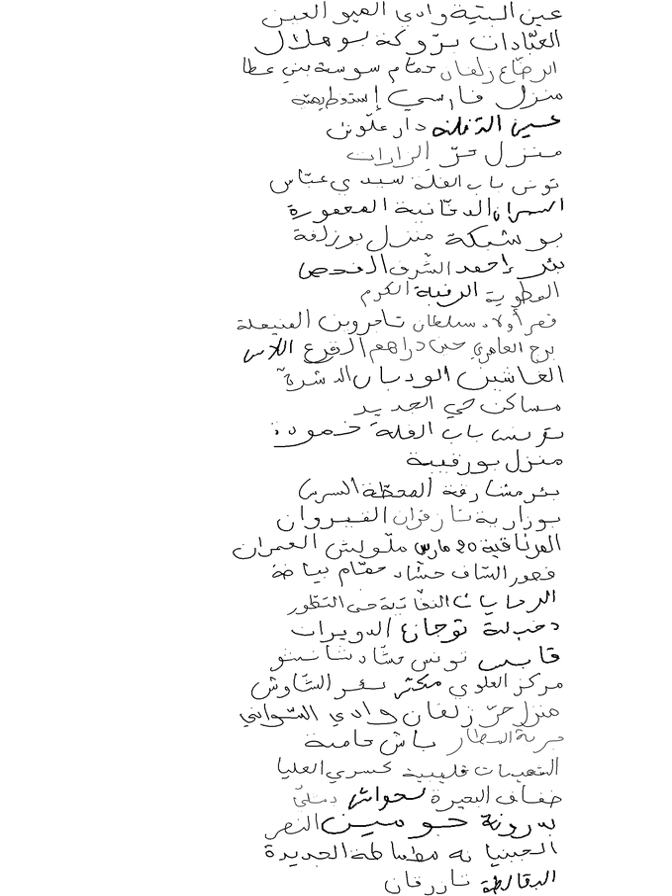 عين البتية وادي الهبو العين
العبّادات برّوكة بوهلال
الرضّاع زلفان حمّام سوسة بني عطا
منزل فارسي إستوطيهيّة
عين الدّفلة دار علّوش
منزل حرّ الرادات
تونس باب الفلّة سيدي عبّاس
السمران الدخّانية المعمورة
بوشبكة منزل بوزلفة
بئر إحمد الشّرف الفحص
المطوية الرقبة الكرم
قصر أولاد سلطان تاجروين المنيهلة
برج العامري حي دراهم القرع اللاس
الغاشين الوديان الدشرة
مساكن حي الجديد
تونس باب الفلّة حمودة
منزل بورقيبة
بئر مشارقة المحطّة السرس
بوزارية تازغران القيروان
المرناقية 20 مارس ملّوليش العمران
قصور السّاف حشّاد حمّام بياضة
الرحايات النفّاتية حي التطّور
دخيلة توجان الدويرات
قابس تونس حشّاد شانشو
مركز العلوي مكثر بئر الشّاوش
منزل حرّ زلفان وادي السّواني
جربة العطار باش حامبة
التعيسات قليبية كسرى العليا
ضفاف البحيرة لحواش
بدرونة حومين النصر
الحبنيانة مطماطة الجديدة
البقالطة تازرقان